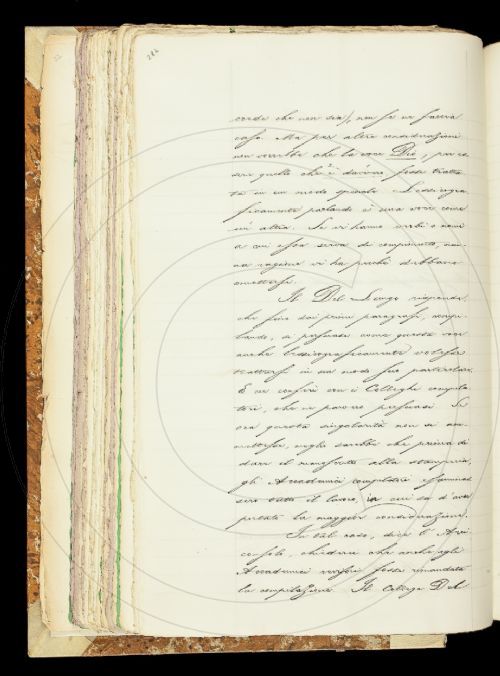 282
corda che non sia, non se ne faccia
caso. Ma per altre considerazioni
non vorrebbe che la voce Dio, per es
sere quello che è davvero, fosse tratta
ta in un modo speciale. Lessicogra
ficamente parlando è una voce come
un'altra. Se vi hanno verbi o nomi
a cui essa serva di compimento, nes
suna ragione vi ha perché debbano
omettersi.
Il Del Lungo risponde
che fino dai primi paragrafi, compi
lando, si persuase come questa voce
anche lessicograficamente volesse
trattarsi in un modo suo particolare.
E ne conferì con i Colleghi compila
tori, che ne parvero persuasi. Se
ora questa singolarità non si am
mettesse, meglio sarebbe che prima di
dare il manoscritto alla stamperia,
gli Accademici compilatori esaminas
sero tutto il lavoro, in cui sa d'aver
portato la maggior considerazione.
In tal caso, dice l'Arci
consolo, chiederei che anche agli
Accademici revisori fosse rimandata
la compilazione. Il Collega Del